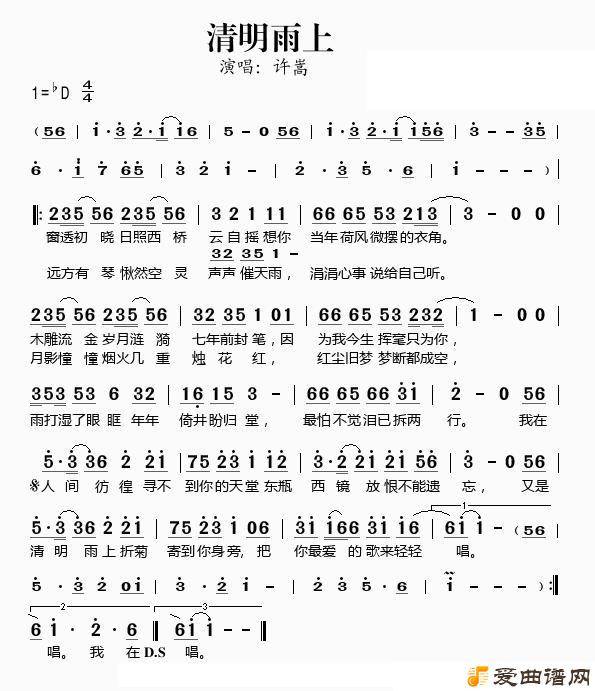 清明雨上
演唱：许嵩
1=♭D 4/4
（56 | i·3 2·i i16 | 5-056 | i·3 2·i i56 | 3--35 |
6·i 765 | 3·2i- | i·3 2·356 | i--- ）|
‖: 235 56 235 56 | 3 2 1 11 | 66 65 53 213 | 3-00 |
窗透初 晓 日照西 桥 云自摇想你 当年荷风微摆的衣角。
32 35 1-
远方有 琴 愀然空 灵 声声催天雨， 涓涓心事说给自己听。
235 56 235 56 | 32 35 1 01 | 66 65 53 232 | 1-00 |
木雕流 金 岁月涟 漪 七年前封笔，因 为我今生挥毫只为你，
月影憧 憧 烟火几 重 烛 花 红， 红尘旧梦 梦断都成空，
353 53 6 32 | 16 15 3- | 66 65 66 31 | 2-056 |
雨打湿了眼 眶 年年 倚井盼归堂， 最怕不觉泪已拆两 行。 我在
5·3 36 2 21 | 75 23 1 12 | 3·2 21 21 56 | 3-056 |
𝄋人 间 彷 徨 寻不 到你的天堂东瓶 西 镜 放 恨不能遗 忘， 又是
5·3 36 2 21 | 75 23 1 06 | 31 166 31 16 | 1 61 1-（56 |
清 明 雨上折菊 寄到你身旁，把 你最爱 的 歌来轻轻 唱。
5·3 2 01 | 3·2i- | 2 35·6 | i-- ）:‖
2 3
6 1·2·6 :‖ 61 1-- ‖
唱。 我 在D.S 唱。
爱曲谱网